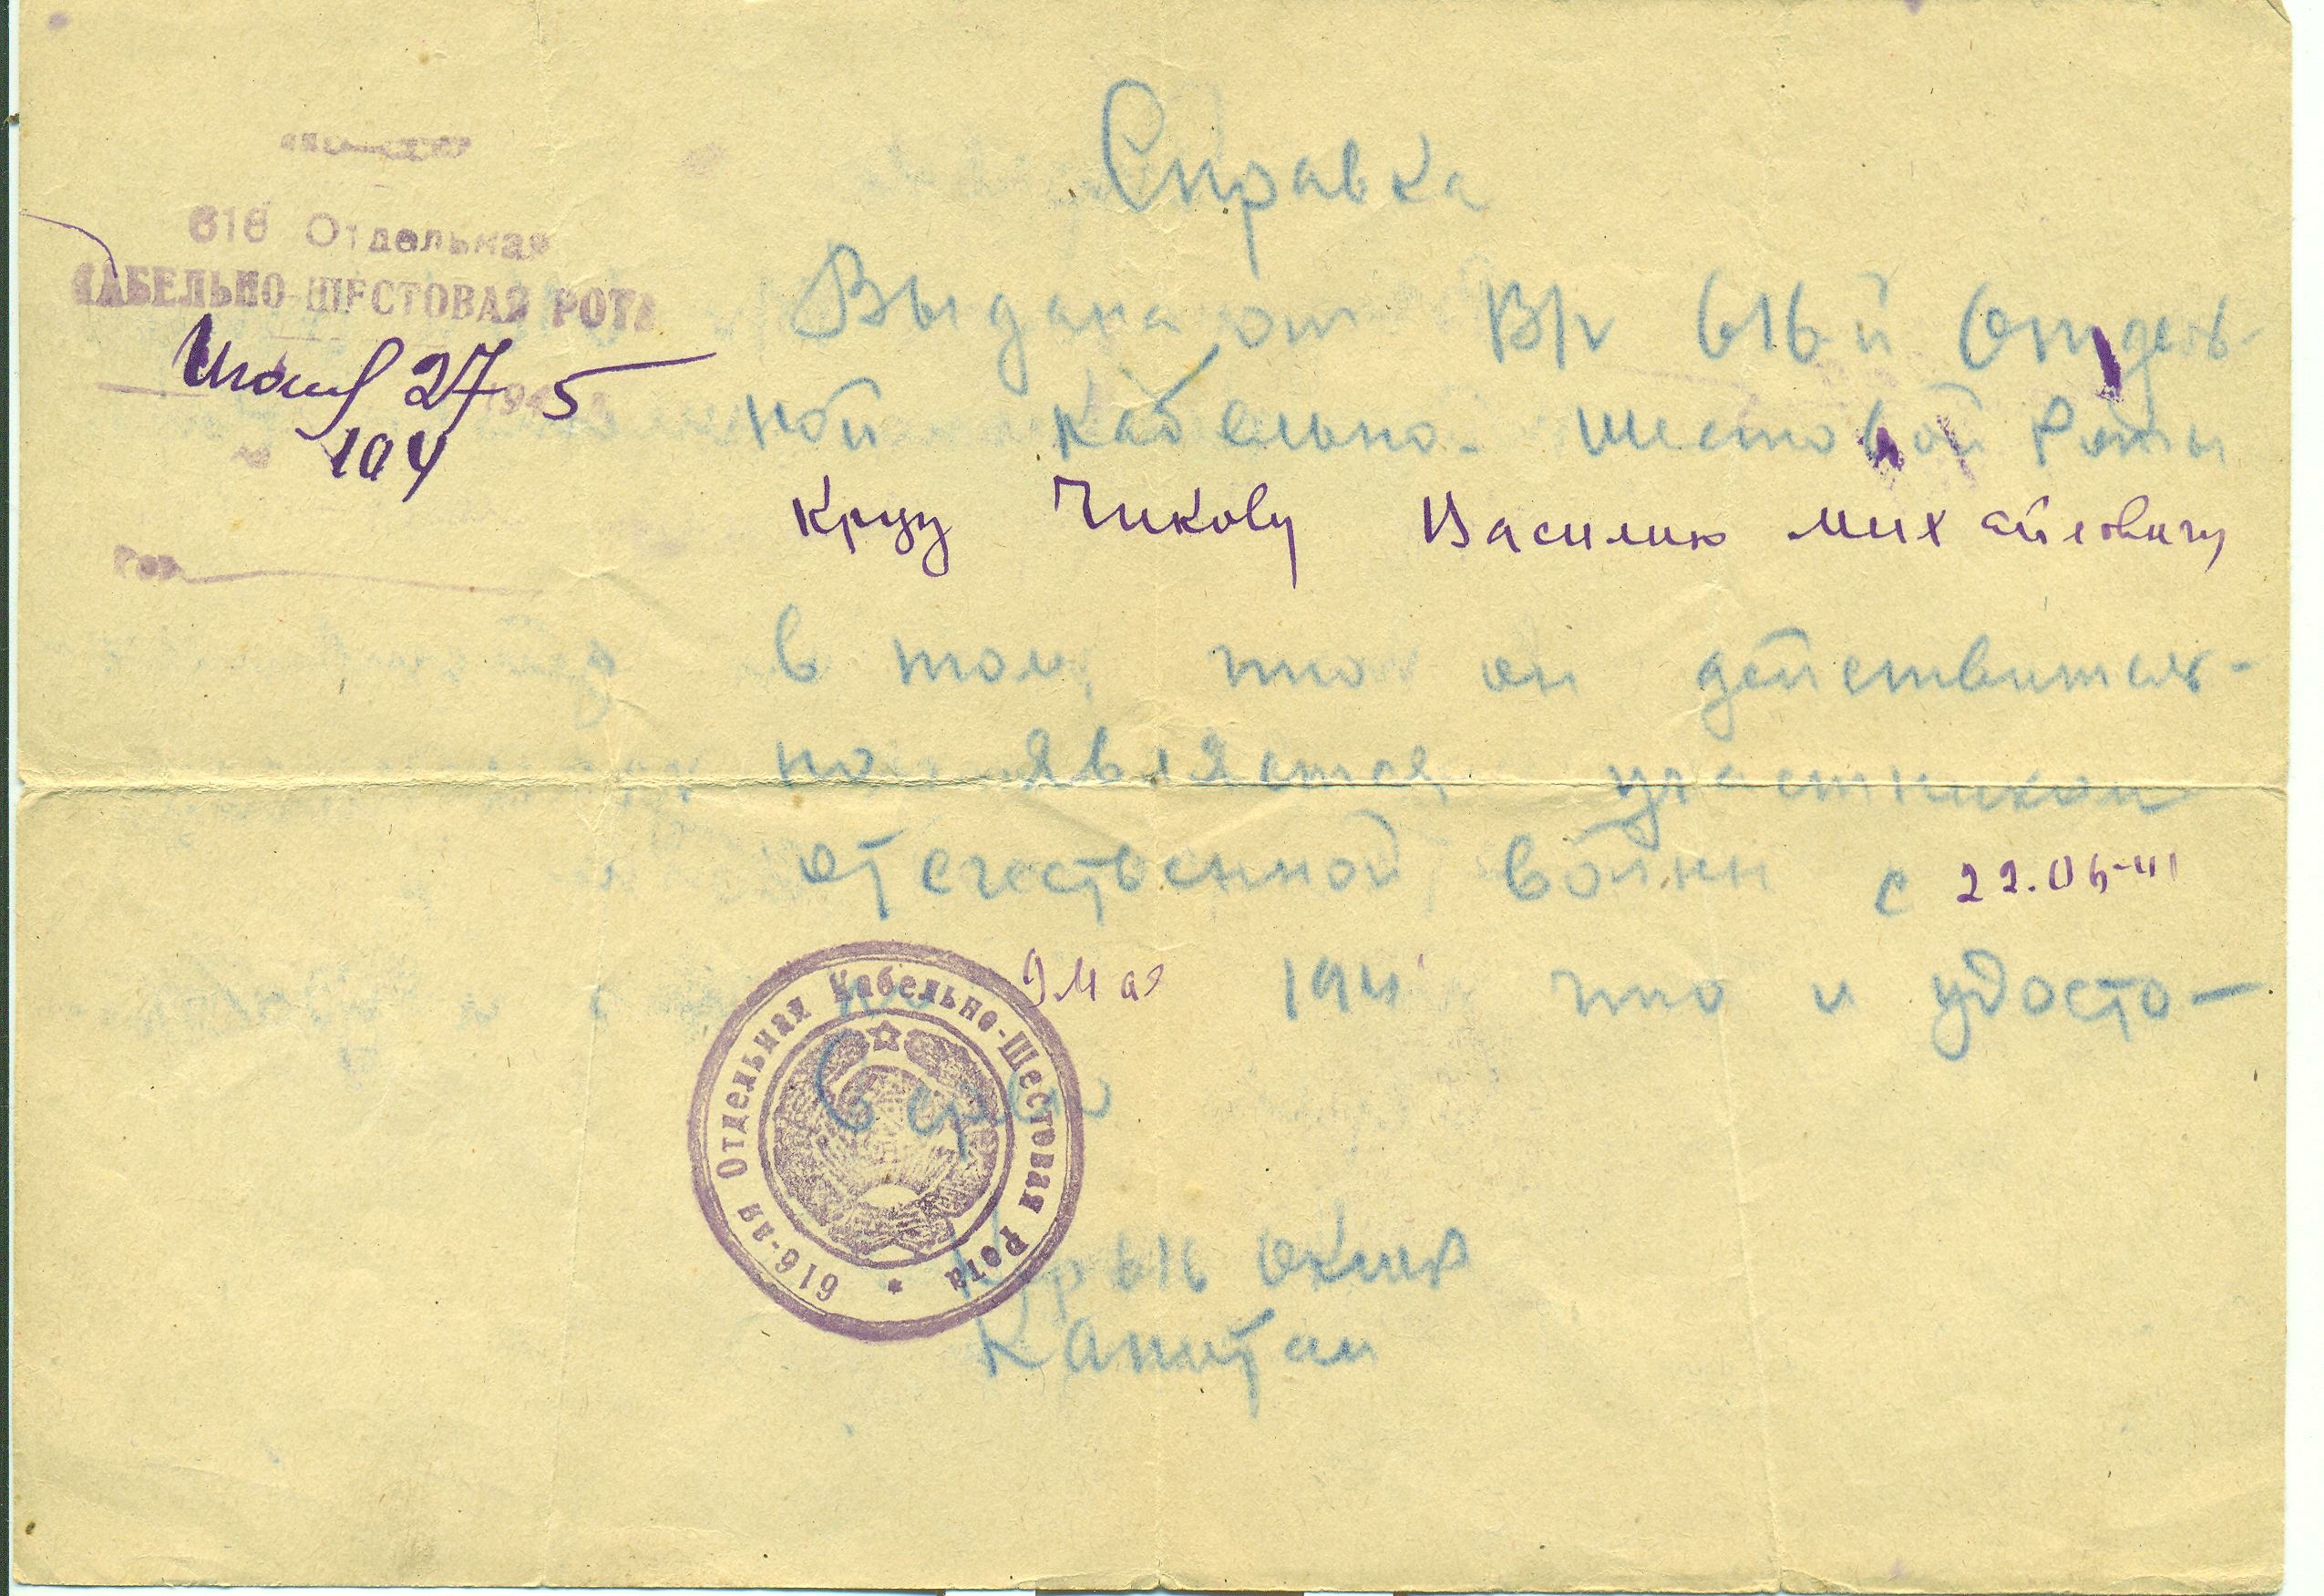 616 Отдельная
КАБЕЛЬНО-ШЕСТОВАЯ РОТА
Июнь 27 194 5
104
Справка
Выдана от В/ч 616-й Отдель-
ной Кабельно-шестовой Роты
Кр-цу Чикову Василию Михайловичу
в том, что он действитель-
но является участником
отечественной войны с 22.06-41
9 мая 194 что и удосто-
616-ая Отдельная Кабельно-Шестовая Рота
Капитан